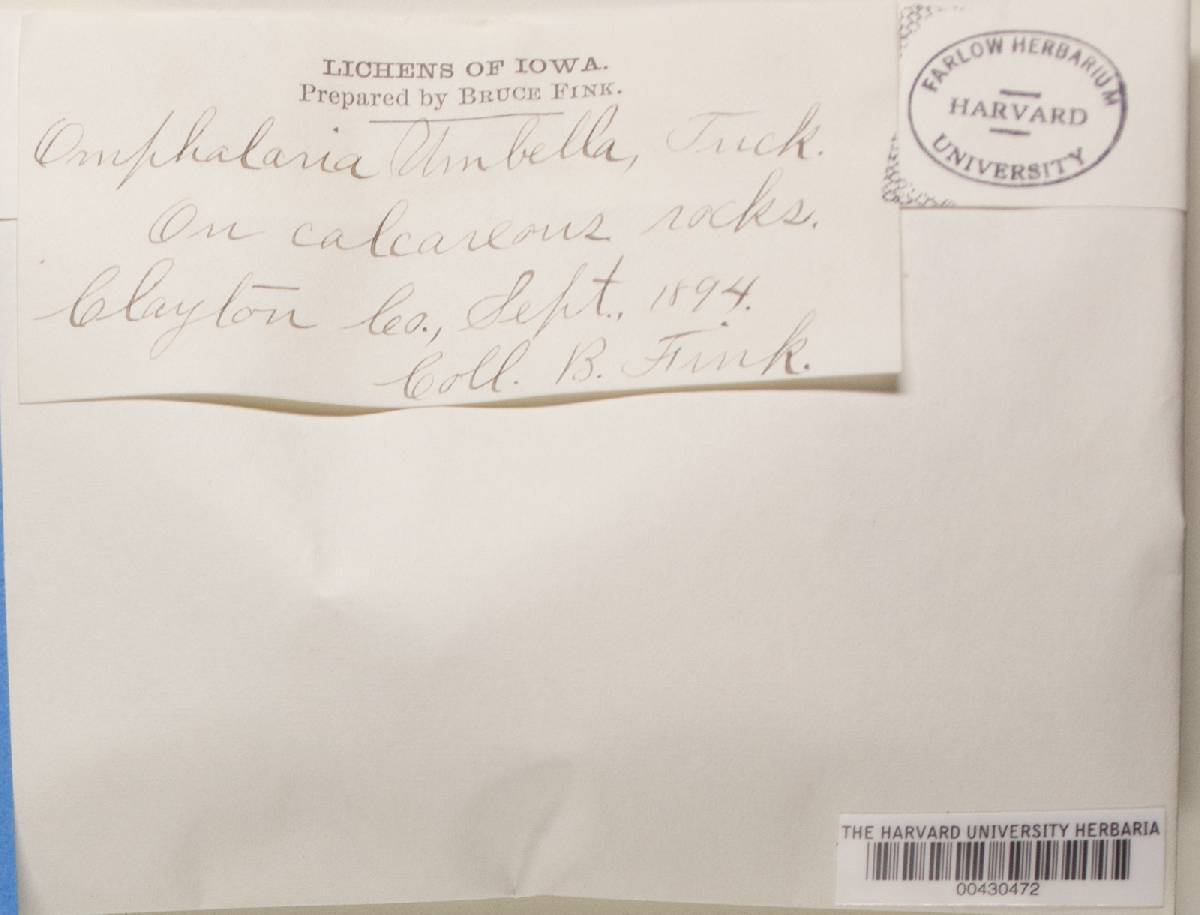 LICHENS OF IOWA.
Prepared by BRUCE FINK.
Omphalaria Umbella, Tuck.
On calcareous rocks.
Clayton Co., Sept., 1894.
Coll. B. Fink.
FARLOW HERBARIUM
HARVARD
UNIVERSITY
THE HARVARD UNIVERSITY HERBARIA
00430472